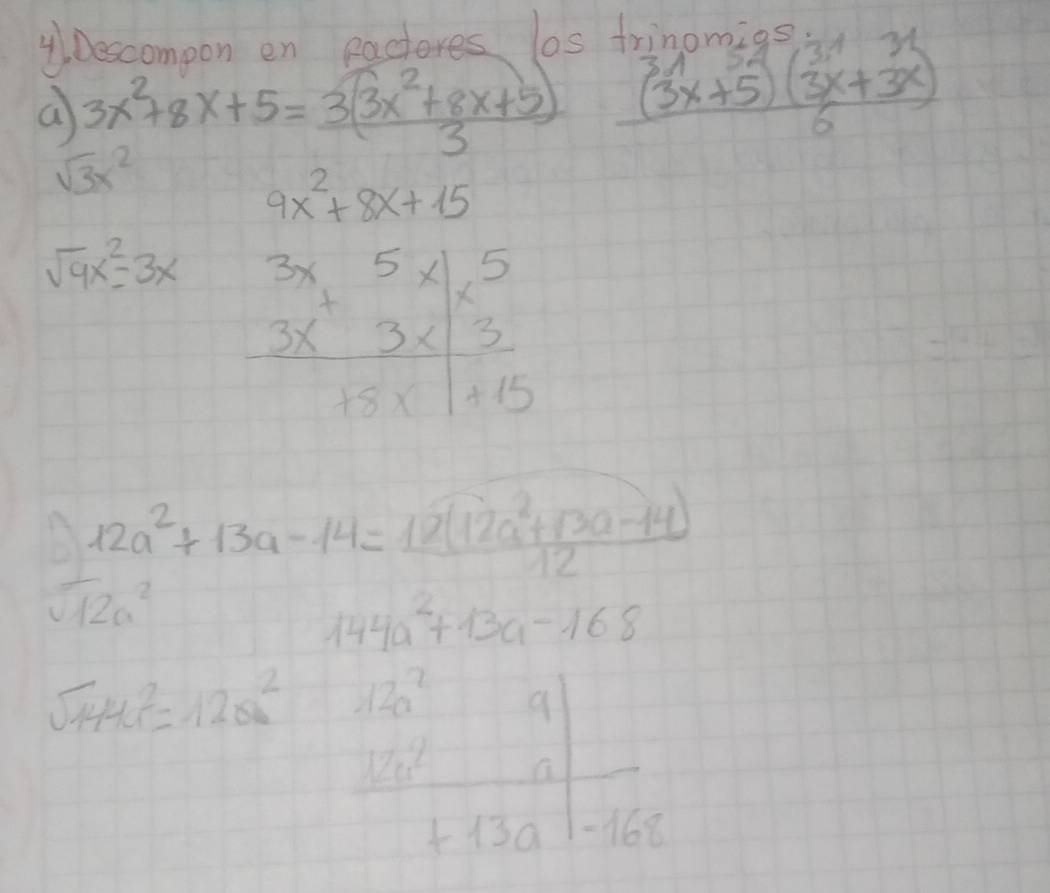 4). Descompon en factores los trinomios:
a) 3x²+8x+5 = 3(3x²+8x+5)/3 (3x+5)(3x+3x)/6
√3x²
9x²+8x+15
√9x²=3x 3x 5x 5
+ x
3x 3x 3
+8x +15
12a²+13a-14 = 12(12a²+13a-14)/12
√12a²
144a²+13a-168
√144a²=12a² 12a² a
12a² a
+13a -168